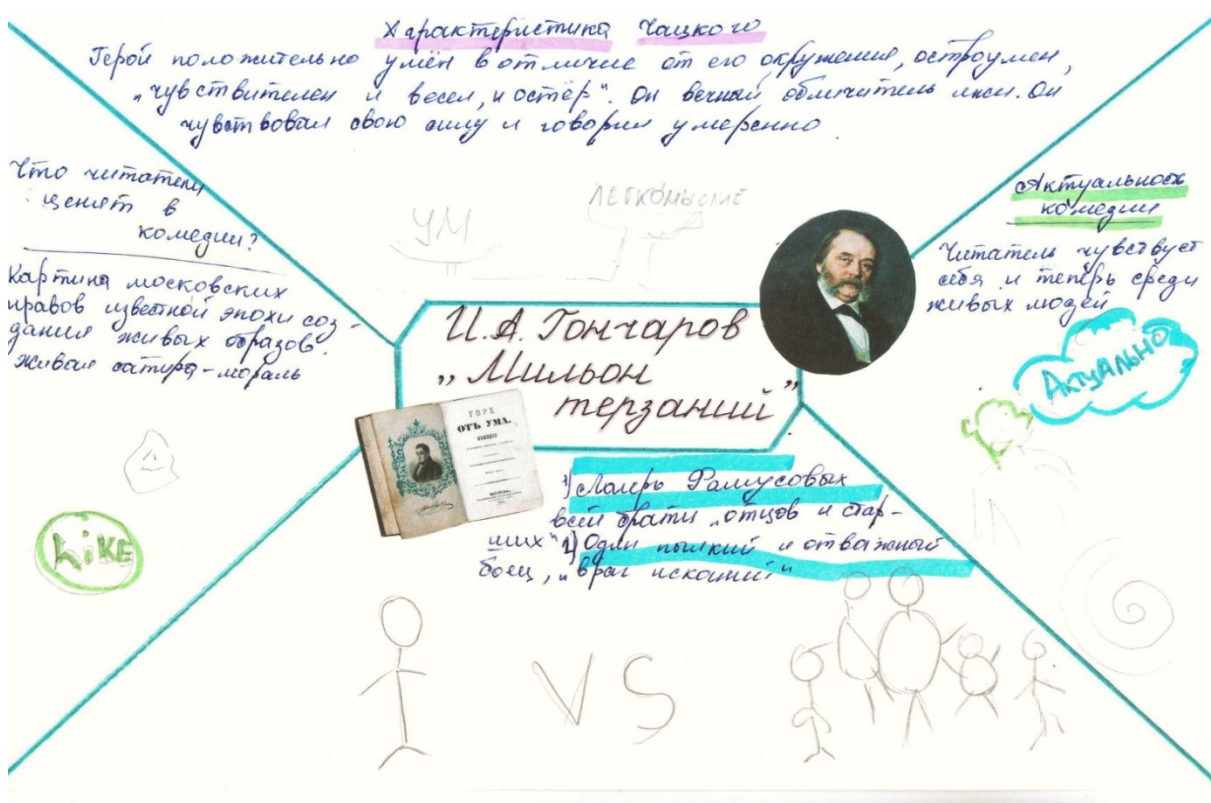 Характеристика Чацкого
Герой положительно умён в отличие от его окружения, остроумен,
„чувствителен и весел, и остёр". Он вечный обличитель лжи. Он
чувствовал свою силу и говорил умеренно
Что читатели
ценят в
комедии?
Картина московских
нравов известной эпохи соз-
дания живых образов.
живая сатира-мораль
Like
УМ
ЛЕГКОМЫСЛИЕ
И.А. Гончаров
„Мильон
терзаний"
ГОРЕ
ОТЪ УМА.
Актуальность
комедии
Читатель чувствует
себя и теперь среди
живых людей
Актуально
1) Лагерь Фамусовых
всей братии „отцов и стар-
ших" 2) Один пылкий и отважный
боец, „враг исканий"
VS